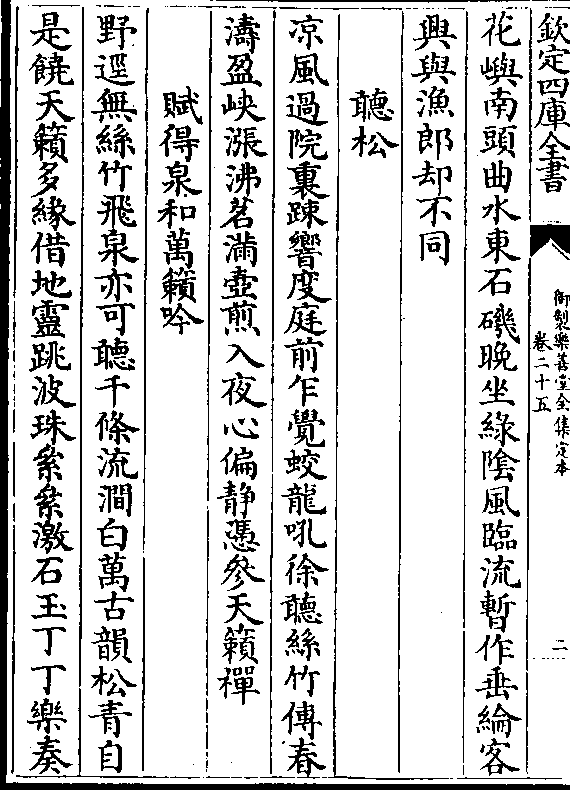 欽定四庫全書
御製樂善堂全集定本
卷二十五
二
花嶼南頭曲水東石磯晚坐綠陰風臨流暫作垂綸客
興與漁郎却不同
聽松
凉風過院裏踈響度庭前乍覺蛟龍吼徐聽絲竹傳春
濤盈峽漲沸茗滿壺煎入夜心偏静憑參天籟禪
賦得泉和萬籟吟
野逕無絲竹飛泉亦可聽千條流澗白萬古韻松青自
是饒天籟多緣借地靈跳波珠纍纍激石玉丁丁樂奏